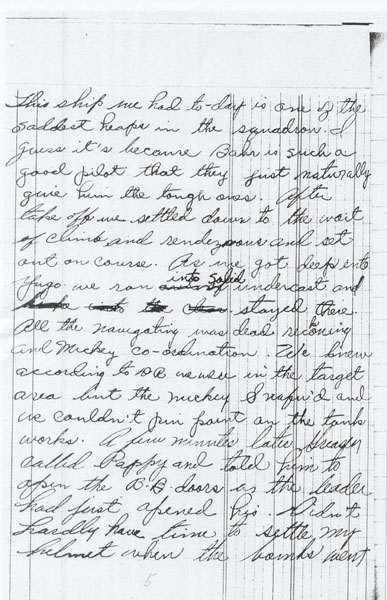 This ship we had to-day is one of the
saddest heaps in the squadron. I
guess it's because Bahr is such a
good pilot that they just naturally
give him the tough ones. After
take off we settled down to the wait
of climb and rendezvous and set
out on course. As we got deep into
Yugo we ran into solid undercast and
stayed there.
All the navigating was dead reckoning
and Mickey co-ordination. We knew
according to DR we were in the target
area but the mickey Snafu'd and
we couldn't pin point on the tank
works. A few minutes later
called Pappy and told him to
open the B.B. doors as the leader
had just opened his. Didn't
hardly have time to settle my
helmet when the bombs went
5